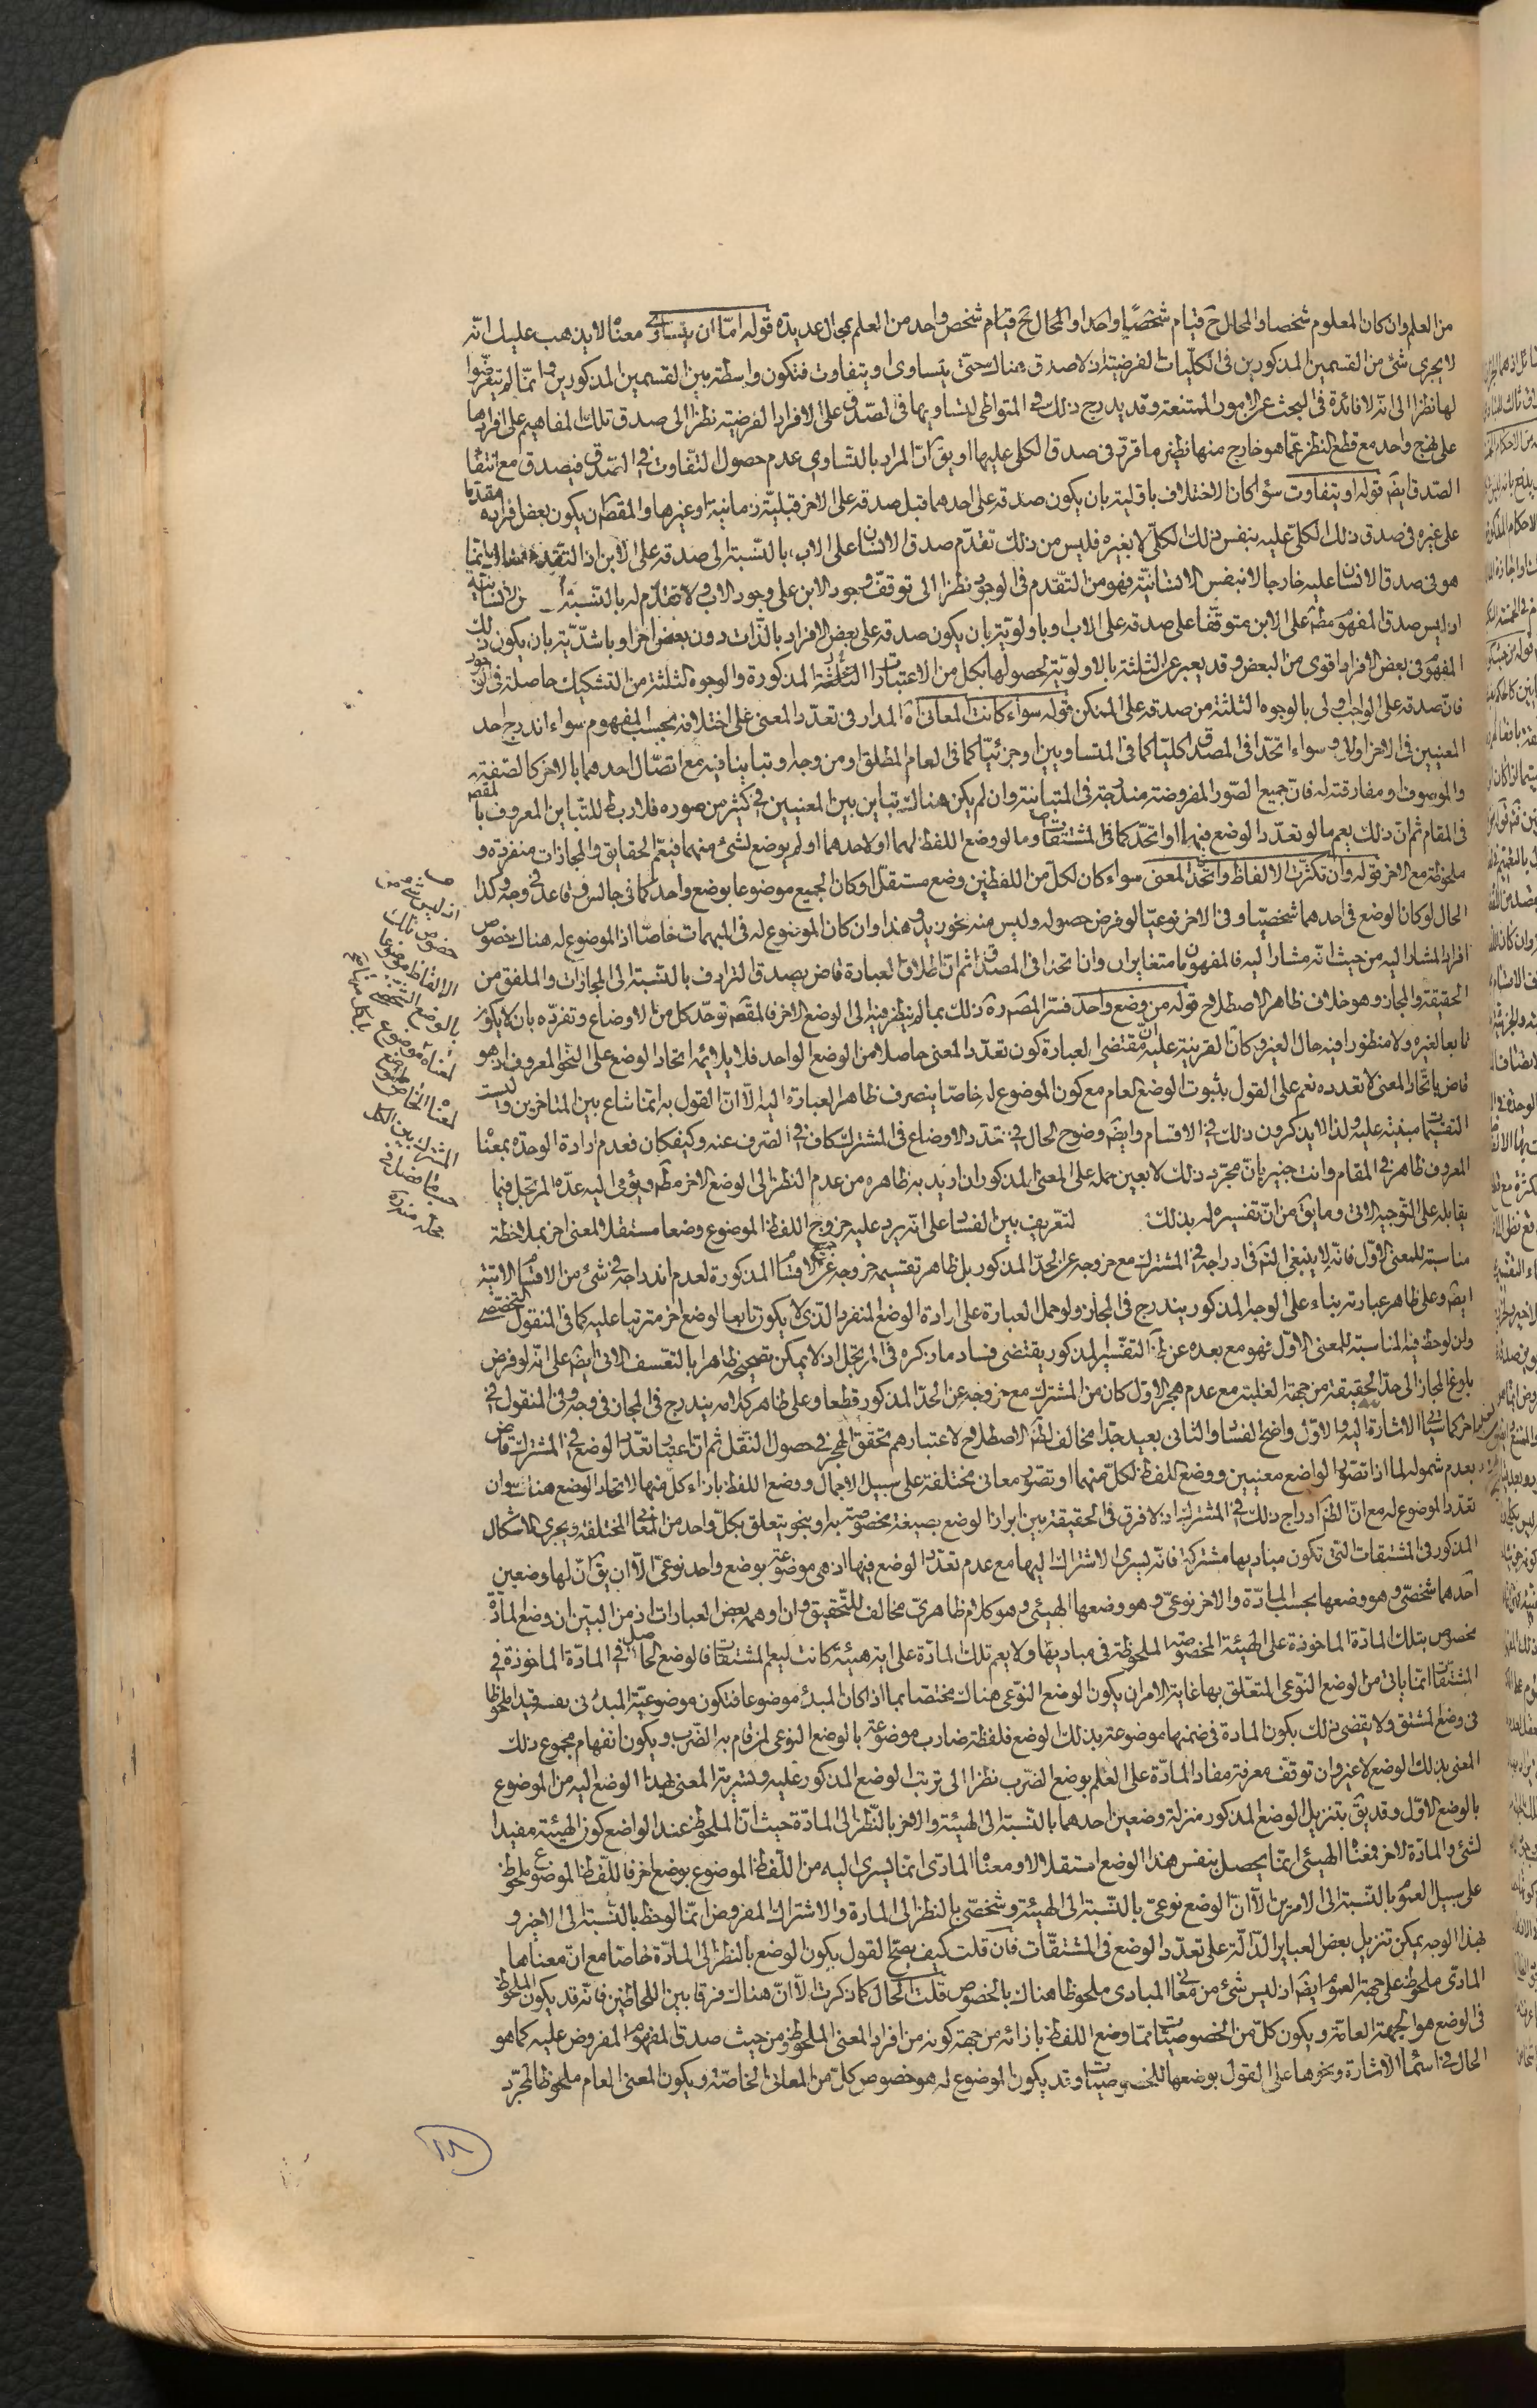 من العلم وان كان المعلوم شخصا والمحال ح قيام شخصيا واحدا والمحال ح قيام شخص واحد من العلم بمحال عديدة قوله امّا ان يتساوى معناه لا يذهب عليك انّه
لا يجرى شئ من القسمين المذكورين فى الكليّات الفرضيّة اذ لا صدق هناك حتى يتساوى او يتفاوت فتكون واسطة بين القسمين المذكورين وانّما لم يتعرّضوا
لها نظرا الى انّه لا فائدة فى البحث عن الامور الممتنعة وقد يدرج ذلك فى المتواطى لتساويها فى الصّدق على الافراد الفرضيّة نظرا الى صدق تلك المفاهيم على افرادها
على نهج واحد مع قطع النظر عمّا هو خارج منها نظير ما قرّر فى صدق الكلى عليها او يق انّ المراد بالتّساوى عدم حصول التّفاوت فى الصّدق فيصدق مع انتفاء
الصّدق ايضً قوله او يتفاوت سواء كان الاختلاف باوّلية بان يكون صدقه على احدهما قبل صدقه على الاخر قبليّة زمانيّة او غيرها والمقصّ ان يكون بعض افراده مقدّما
على غيره فى صدق ذلك الكلى عليه بنفس ذلك الكلّى لا بغيره فليس من ذلك تقدّم صدق الانسان على الاب بالنّسبة الى صدقه على الابن اذ التقدّم هناك انّما
هو فى صدق الانسان عليه خارجا لا بنفس الانسانيّة فهو من التّقدّم فى الوجود نظرا الى توقّف وجود الابن على وجود الاب ولا تقدّم له بالنّسبة الى نفس الانسانيّة
اذ ليس صدق المفهوم مطً على الابن متوقّفا على صدقه على الاب او باولويّة بان يكون صدقه على بعض الافراد بالذّات دون بعض اخر او باشدّيّة بان يكون ذلك
المفهوم فى بعض الافراد اقوى من البعض وقد يعبر عن الثلثة بالاولويّة لحصولها بكل من الاعتبارات الثلثة المذكورة والوجوه الثلثة من التشكيك حاصلة فى الوجود
فانّ صدقه على الواجب اولى بالوجوه الثلثة من صدقه على الممكن قوله سواء كانت المعانى اه المدار فى تعدّد المعنى على اختلافه بحسب المفهوم سواء اندرج احد
المعنيين فى الاخر او لا وسواء اتحدا فى المصداق كليّا كما فى المتساويين او جزئيّا كما فى العام المطلق او من وجه او تباينا فيه مع اتصّال احدهما بالاخر كالصّفة
والموصوف او مفارقته له فان جميع الصّور المفروضة مندرجة فى المتباينة وان لم يكن هناك تباين بين المعنيين فى كثير من صوره فلا ربط للتّباين المعروف بالمقص
فى المقام ثم انّ ذلك يعم ما لو تعدّد الوضع فيهما او اتحدّ كما فى المشتقات وما لو وضع اللفظ لهما او لاحدهما او لم يوضع لشئ منهما فيعم الحقايق والمجازات منفردة و
ملحوظة مع الاخر قوله وان تكثّرت الالفاظ واتّحد المعنى سواء كان لكلّ من اللفظين وضع مستقلّ او كان الجميع موضوعا بوضع واحد كما فى جالس وقاعد فى وجه وكذا
الحال لو كان الوضع فى احدهما شخصيّا وفى الاخر نوعيّا لو فرض حصوله وليس منه نحو زيد وهذا وان كان الموضوع له فى المبهمات خاصّا اذ الموضوع له هناك خصوص
افراد المشار اليه من حيث انّه مشار اليه فالمفهومان متغايران وان اتحدا فى المصداق ثم انّ اطلاق العبارة قاض بصدق الترادف بالنّسبة الى المجازات والملفق من
الحقيقة والمجاز وهو خلاف ظاهر الاصطلاح قوله من وضع واحد فسّر المصَ ره ذلك بما لم ينظر فيه الى الوضع الاخر فالمقصّ توحّد كل من الاوضاع وتفرّده بان لا يكون
تابعا لغيره ولا منظورا فيه حال الغير وكانّ القرينة عليه انّ مقتضى العبارة كون تعدّد المعنى حاصلا من الوضع الواحد فلا يلائمه اتحاد الوضع على النّحو المعروف اذ هو
قاض باتّحاد المعنى لا تعدده نعم على القول بثبوت الوضع العام مع كون الموضوع له خاصّا ينصرف ظاهر العبارة اليه الّا انّ القول به انّما شاع بين المتاخرين وليست
التقسيمات مبنيّة عليه ولذا لا يذكرون ذلك فى الاقسام وايضً وضوح الحال فى تعدّد الاوضاع فى المشترك كاف فى الصّرف عنه وكيفكان فعدم ارادة الوحدة بمعناه
المعروف ظاهر فى المقام وانت خبير بانّ مجرّد ذلك لا يعين حمله على المعنى المذكور ان اريد به ظاهره من عدم النّظر الى الوضع الاخر مطً ويؤمى اليه عدّه المرتجل فيما
يقابله على التّوجيه الاتى وما يق من انّ تفسيره له بذلك لتعريف بين الفساد على انّه يرد عليه خروج اللفظ الموضوع وضعا مستقلا لمعنى اخر بملاحظة
مناسبة للمعنى الاوّل فانّه لا ينبغى التمً فى ادراجه فى المشترك مع خروجه عن الحدّ المذكور بل ظاهر تقسيمه خروجه عن جميع الاقسام المذكورة لعدم اندراجه فى شئ من الاقسام الاتية
ايضً وعلى ظاهر عبارته بناء على الوجه المذكور يندرج فى المجاز ولو حمل العبارة على ارادة الوضع المنفرد الّذى لا يكون تابعا لوضع اخر مترتبا عليه كما فى المنقول التخصّصى
وان لوحظ فيه المناسبة للمعنى الاوّل فهو مع بعده عن ظ التفسير المذكور يقتضى فساد ما ذكره فى المرتجل اذ لا يمكن تصحيحه ظاهرا بالتعسف الاتى ايضً على انّه لو فرض
بلوغ المجاز الى حدّ الحقيقة من جهة الغلبة مع عدم هجر الاوّل كان من المشترك مع خروجه عن الحدّ المذكور قطعا وعلى ظاهر كلامه يندرج فى المجاز فى وجه وفى المنقول فى
اخر كما سيأتى الاشارة اليه والاوّل واضح الفساد والثانى بعيد جدّا مخالف لظ الاصطلاح لاعتبارهم تحقّق الهجر فى حصول النّقل ثم انّ اعتبار تعدّد الوضع فى المشترك قاض
بعدم شموله لما اذا تصوّر الواضع معنيين ووضع اللفظ لكلّ منهما او تصوّر معانى مختلفة على سبيل الاجمال ووضع اللفظ بازاء كل منها لاتحاد الوضع هناك وان
تعدّد الموضوع له مع انّ الظ ادراج ذلك فى المشترك اذ لا فرق فى الحقيقة بين ابراز الوضع بصيغة مخصوصة به او بنحو يتعلق بكلّ واحد من المعانى المختلفة ويجرى الاشكال
المذكور فى المشتقات الّتى تكون مباديها مشتركة فانّه يسرى الاشتراك اليها مع عدم تعدّد الوضع فيها اذ هى موضوعة بوضع واحد نوعىّ الّا ان يق انّ لها وضعين
احدهما شخصىّ وهو وضعها بحسب المادّة والاخر نوعىّ وهو وضعها الهيئى وهو كلام ظاهرىّ مخالف للتّحقيق وان اوهمه بعض العبارات اذ من البيّن ان وضع المادّة
مخصوص بتلك المادّة الماخوذة على الهيئة المخصوصة الملحوظة فى مباديها ولا يعم تلك المادّة على ايّة هيئة كانت ليعم المشتقات فالوضع الحاصل فى المادّة الماخوذة فى
المشتقات انّما ياتى من الوضع النّوعى المتعلّق بها غاية الامر ان يكون الوضع النّوعى هناك مختصّا بما اذا كان المبدء موضوعا فتكون موضوعيّة المبدء فى نفسه قيدا ملحوظا
فى وضع المشتق ولا يقضى ذلك بكون المادة فى ضمنها موضوعة بذلك الوضع فلفظة ضارب موضوعة بالوضع النوعى لمن قام به الضّرب ويكون انفهام مجموع ذلك
المعنى بذلك الوضع لا غير وان توقّف معرفة مفاد المادّة على العلم بوضع الضّرب نظرا الى ترتب الوضع المذكور عليه وسراية المعنى بهذا الوضع اليه من الموضوع
بالوضع الاوّل وقد يقّ بتنزيل الوضع المذكور منزلة وضعين احدهما بالنّسبة الى الهيئة والاخر بالنّظر الى المادّة حيث انّ الملحوظ عند الواضع كون الهيئة مفيدا
لشئ والمادّة لاخر فمعناه الهيئى انّما يحصل بنفس هذا الوضع استقلالا ومعناه المادى انّما يسرى اليه من اللّفظ الموضوع بوضع اخر فاللّفظ الموضوع ملحوظ
على سبيل العموم بالنّسبة الى الامرين الّا انّ الوضع نوعىّ بالنّسبة الى الهيئة وشخصّى بالنظر الى المادة والاشتراك المفروض انّما لوحظ بالنّسبة الى الاخير و
بهذا الوجه يمكن تنزيل بعض العباير الدّالّة على تعدّد الوضع فى المشتقّات فان قلت كيف يصحّ القول بكون الوضع بالنظر الى المادّة خاصّا مع انّ معناها
المادّى ملحوظ على جهة العموم ايضً اذ ليس شئ من معانى المبادى ملحوظا هناك بالخصوص قلت الحال كما ذكرت الّا انّ هناك فرقا بين اللحاظين فانّه قد يكون الملحوظ
فى الوضع هو الجهة العامّة ويكون كلّ من الخصوصيّات ممّا وضع اللفظ بازائه من جهة كونه من افراد المعنى الملحوظ ومن حيث صدق المفهوم المفروض عليه كما هو
الحال فى اسماء الاشارة ونحوها على القول بوضعها للخصوصيّات وقد يكون الموضوع له هو خصوص كلّ من المعانى الخاصّة ويكون المعنى العام ملحوظا لمجرّد
اذ ليس شئ من
خصوص تلك
الالفاظ موضوعا
بالوضع الشخصى